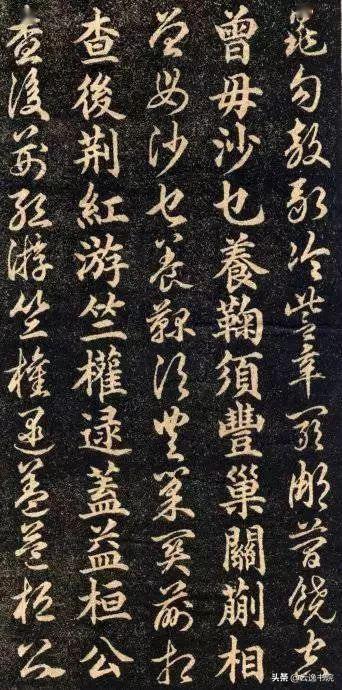 鼂勾敖融冷訾辛闞那簡饒空
曾毋沙乜養鞠須豐巢關蒯相
曾毋沙乜養鞠須豐巢關蒯相
查後荊紅游竺權逯蓋益桓公
查後荊紅游竺權逯蓋益桓公
头条 @云逸书院